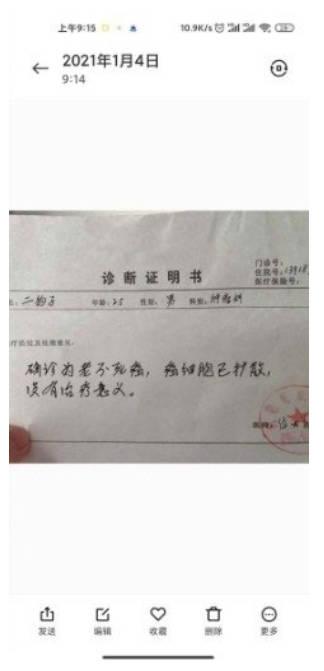 上午9:15
10.9K/s
2021年1月4日
9:14
诊断证明书
门诊号:
住院号:
医疗保险号:
二狗子 年龄:25 性别:男 科别:肿瘤科
确诊为老不死癌,癌细胞已扩散,
没有治疗意义。
医师:
发送 编辑 收藏 删除 更多